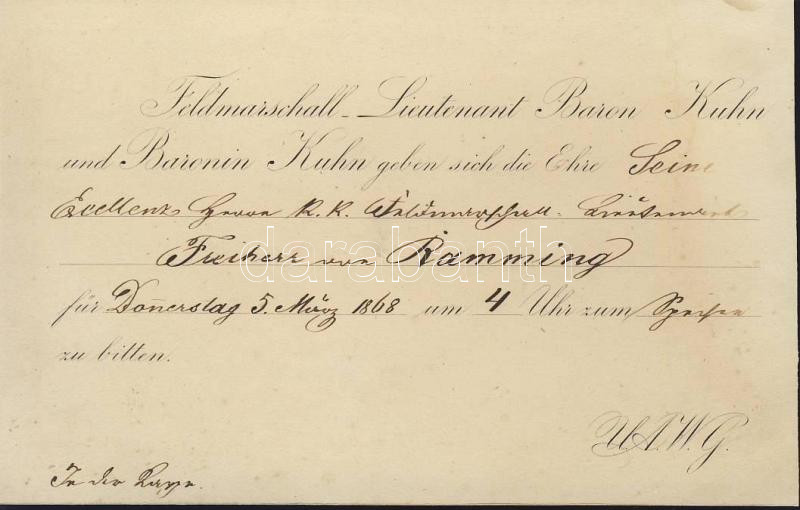 Feldmarschall-Lieutenant Baron Kuhn
und Baronin Kuhn geben sich die Ehre Seine
Excellenz Herrn K. K. Feldmarschall-Lieutenant
Freiherr von Ramming
für Donnerstag 5. März 1868 um 4 Uhr zum Speisen
zu bitten.
U. A. W. G.
In der
darabanth